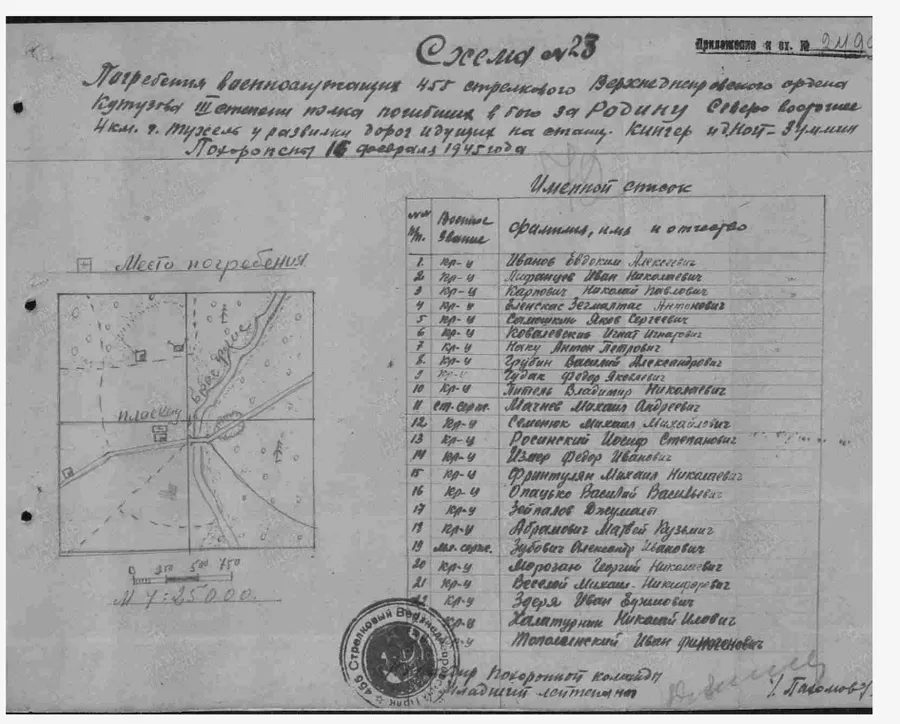 Приложение к вх. № 2119
Схема №23
Погребения военнослужащих 455 стрелкового Верхнеднепровского ордена
Кутузова III степени полка погибших в бою за Родину Северо восточнее
4 км. г. Тукель у развилки дорог идущих на станц. Кингер и д.
Похоронены 16 февраля 1945 года
Именной список
№№ п/п. Военное звание Фамилия, имя и отчество
1. кр-ц Иванов Евдоким Алексеевич
2 кр-ц Иван Николаевич
3 кр-ц Карпович Николай Павлович
4 кр-ц Антонович
5 кр-ц Самошкин Яков Сергеевич
6 кр-ц Ковалевский Игнат Игнатович
7 кр-ц Наку Антон Петрович
8 кр-ц Грубин Василий Александрович
9 кр-ц Гудак Федор Яковлевич
10 кр-ц Литель Владимир Николаевич
11 ст-серж. Мачнев Михаил Андреевич
12 кр-ц Семенюк Михаил Михайлович
13 кр-ц Росинский Иосиф Степанович
14 кр-ц Измер Федор Иванович
15 кр-ц Фринтулян Михаил Николаевич
16 кр-ц Опацько Василий Васильевич
17 кр-ц Зейпалов Джумалы
18 кр-ц Абрамович Матвей Кузьмич
19 мл-серж. Зубович Александр Иванович
20 кр-ц Морозан Георгий Николаевич
21 кр-ц Веселой Михаил Никифорович
22 кр-ц Здеря Иван Ефимович
кр-ц Халатурник Николай
Иван
Место погребения
Плаской
0 250 500 750
М 1:25000.
455 Стрелковый
Похоронной команды
Младший лейтенант
/Пахомов/